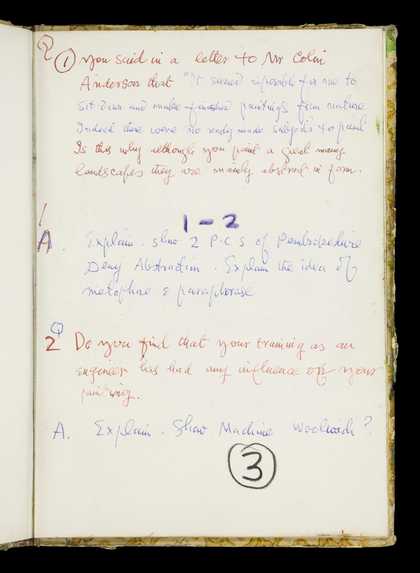 Q
① you said in a letter to Mr Colin
Anderson that "It seemed impossible for me to
sit down and make finished paintings from nature
Indeed there were no ready made subjects to paint
Is this why although you paint a good many
landscapes they are mainly abstract in form.
1-2
A. Explain. show 2 P.C.S of Pembrokeshire
Deny Abstraction. Explain the idea of
metaphor & paraphrase
Q
2 Do you find that your training as an
engineer has had any influence on your
painting.
A. Explain. Show Machine Woolwich?
3